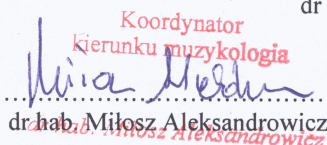 dr
Koordynator
kierunku muzykologia
dr hab. Miłosz Aleksandrowicz
dr hab. Miłosz Aleksandrowicz